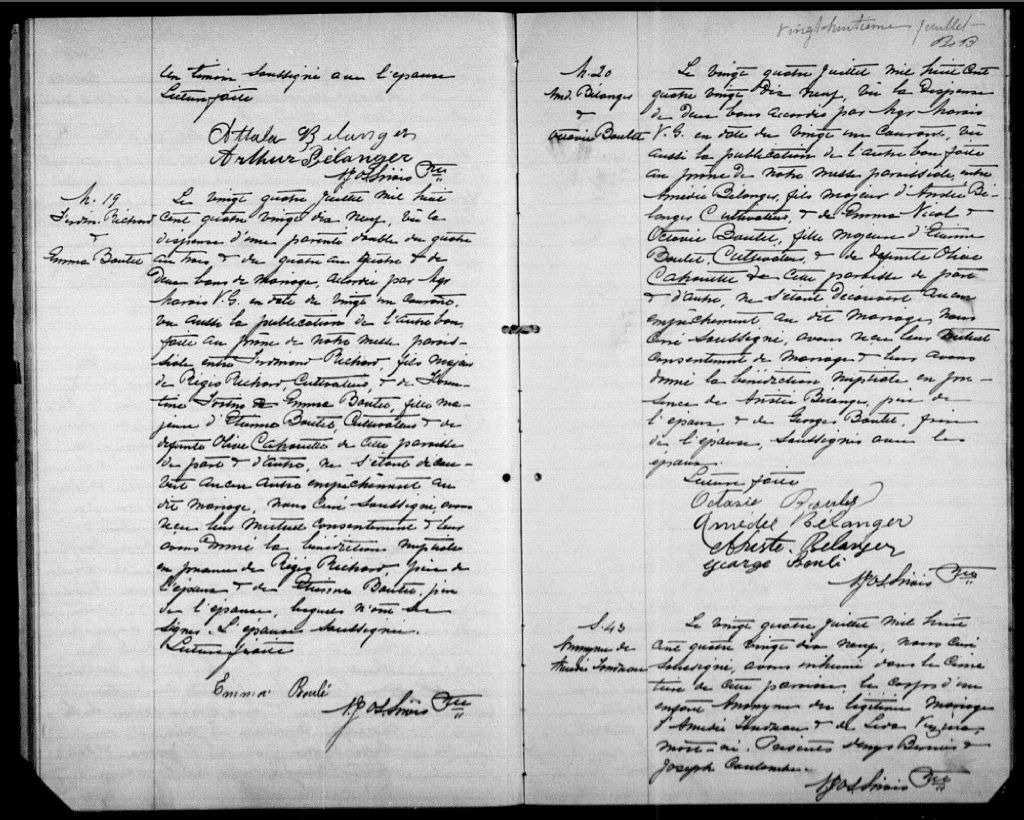 un témoin soussigné avec l'épouse
Lecture faite
Attala Bélanger
Arthur Bélanger
Ptre
M. 19
Ferdin. Richard
&
Emma Boutet
Le vingt quatre Juillet mil huit
cent quatre vingt dix neuf, vu la
dispense d'une parenté double du quatre
au trois & du quatre au quatre & de
deux bans de mariage, accordée par Mgr
Marois V.G. en date du vingt un courant,
vu aussi la publication de l'autre ban
faite au prône de notre messe parois-
siale entre Ferdinand Richard, fils majeur
de Régis Richard, Cultivateur, & de
Fortin & Emma Boutet, fille ma-
jeure d'Etienne Boutet, Cultivateur & de
défunte Olive Cahouette de cette paroisse
de part & d'autre, ne s'étant décou-
vert aucun autre empêchement au
dit mariage, nous Curé soussigné, avons
reçu leur mutuel consentement & leur
avons donné la bénédiction nuptiale
en présence de Régis Richard père de
l'époux & de Etienne Boutet, père
de l'épouse, lesquels n'ont su
signer. L'épouse soussignée.
Lecture faite
Emma Boulé
Ptre
vingt-huitième feuillet
M. 20
Amd. Bélanger
&
Octavie Boutet
Le vingt quatre Juillet mil huit cent
quatre vingt dix neuf, vu la dispense
de deux bans accordée par Mgr Marois
V.G. en date du vingt un courant, vu
aussi la publication de l'autre ban faite
au prône de notre messe paroissiale, entre
Amédée Bélanger, fils majeur d'Anstée Bé-
langer Cultivateur, & de Emma Nicol &
Octavie Boutet, fille majeure d'Etienne
Boutet, Cultivateur, & de défunte Olive
Cahouette de cette paroisse de part
& d'autre, ne s'étant découvert aucun
empêchement au dit mariage, nous
Curé soussigné, avons reçu leur mutuel
consentement de mariage & leur avons
donné la bénédiction nuptiale en pré-
sence de Anstée Bélanger, père de
l'époux, & de Georges Boutet, frère
de l'épouse, soussignés avec les
époux.
Lecture faite
Octavie Boulet
Amédée Bélanger
Bélanger
George Boulé
Ptre
S. 43
Anonyme de
Amédée
Le vingt quatre Juillet mil huit
cent quatre vingt dix neuf, nous Curé
soussigné, avons inhumé dans le Cime-
tière de cette paroisse, le corps d'un
enfant Anonyme du légitime Mariage
d'Amédée & de Lida
mort-né. Présents Bernier &
Joseph Coulombe.
Ptre